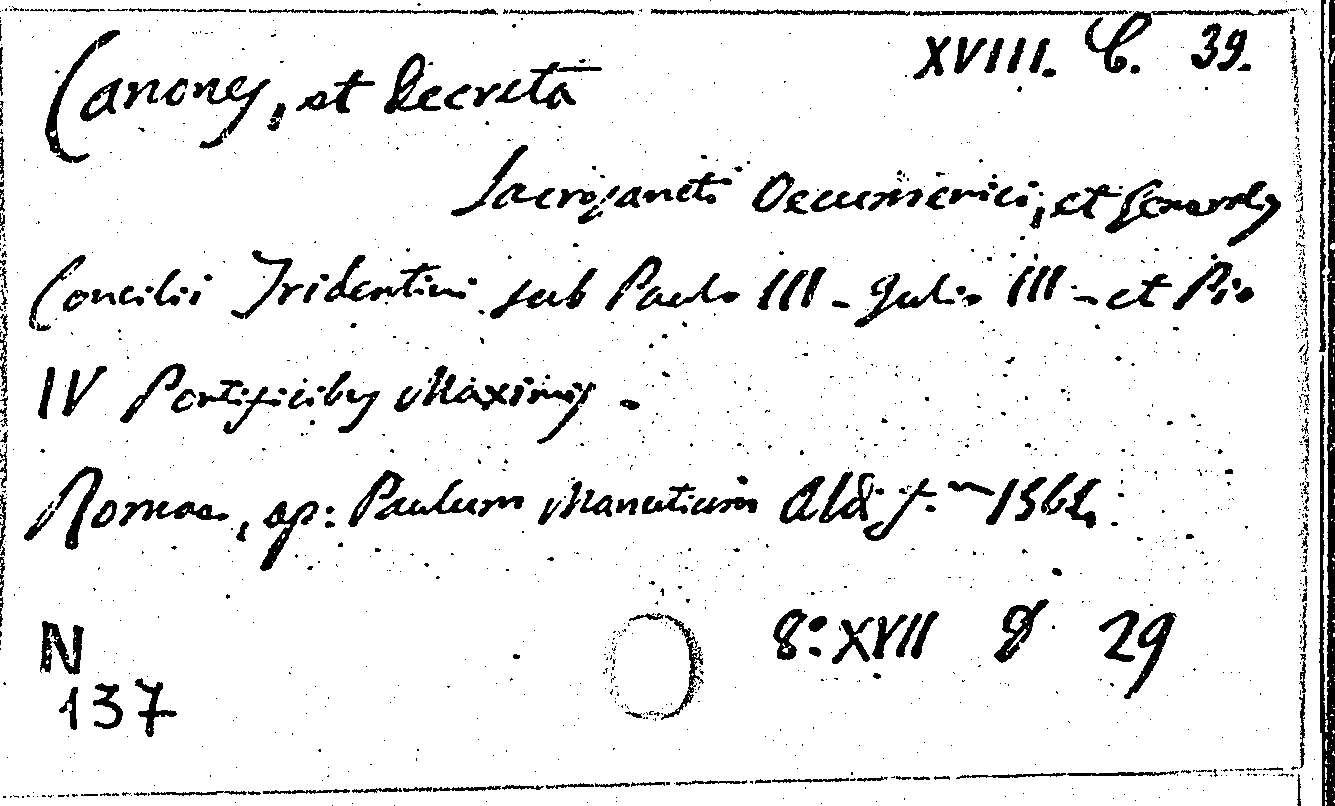 XVIII. C. 39.
Canones, et Decreta
Sacrosancti Oecumenici, et Generalis
Concilii Tridentini sub Paulo III - Julio III - et Pio
IV Pontificibus Maximis -
Romae, ap: Paulum Manutium Aldi f. - 1564.
8:° XVII 29
N
137